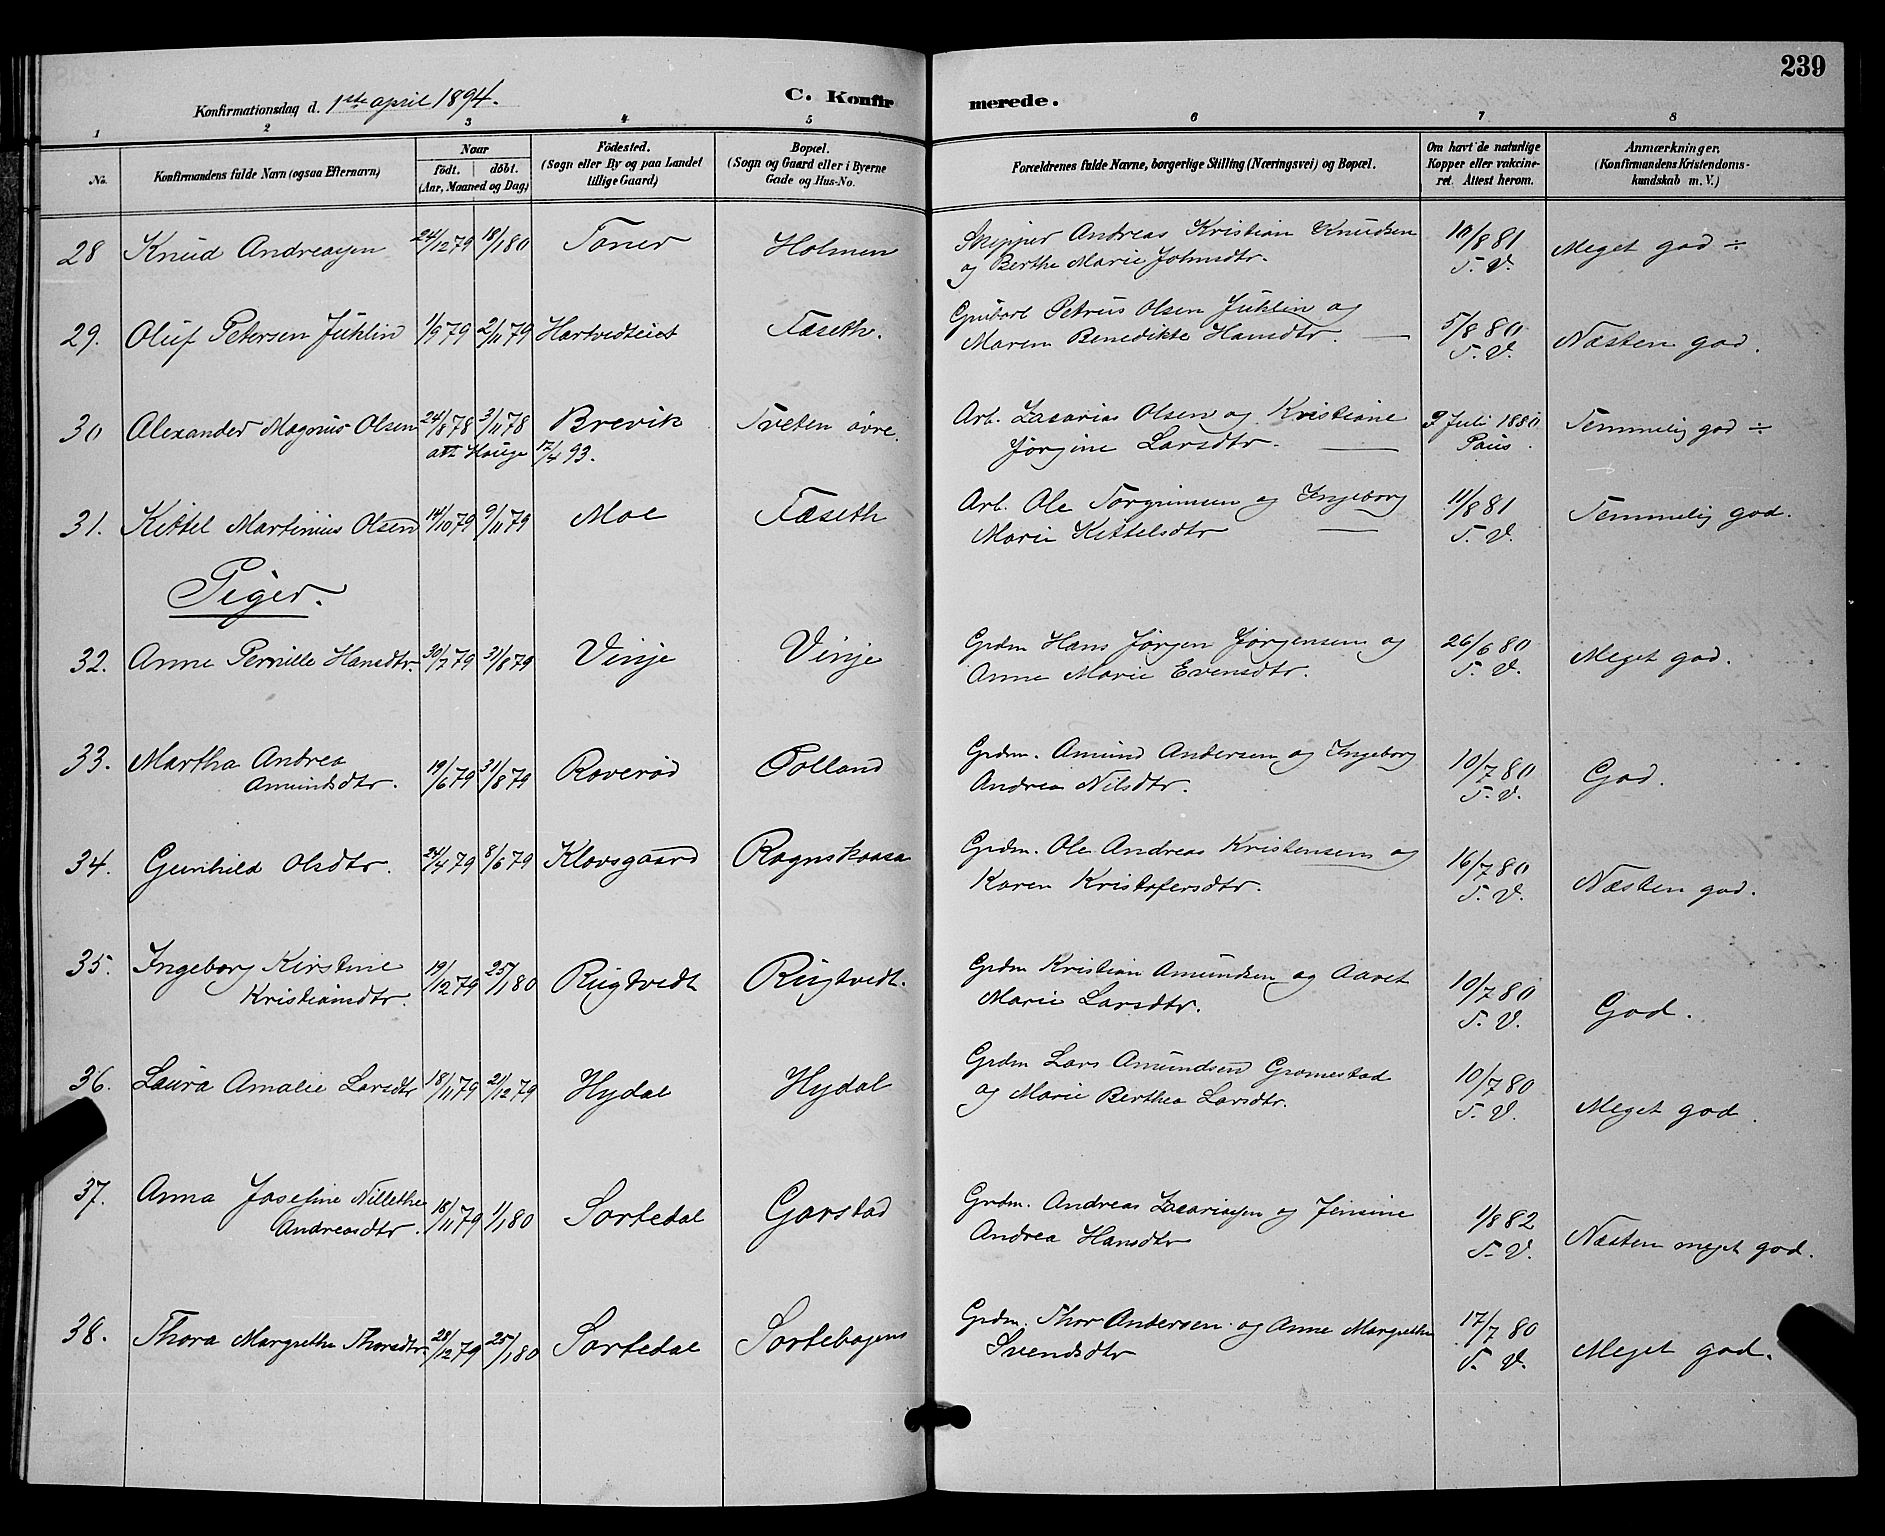 239
Konfirmationsdag d. 1ste april 1894. C. Konfir merede.
1 2 3 4 5 6 7 8
No. Konfirmandens fulde Navn (ogsaa Efternavn)
Naar
født. døbt.
(Aar, Maaned og Dag)
Fødested.
(Sogn eller By og paa Landet
tillige Gaard)
Bopæl.
(Sogn og Gaard eller i Byerne
Gade og Hus-No.
Forældrenes fulde Navne, borgerlige Stilling (Næringsvei) og Bopæl.
Om havt de naturlige
Kopper eller vakcine-
ret. Attest herom.
Anmærkninger.
(Konfirmandens Kristendoms-
kundskab m. V.)
28 Knud Andreasen 24/12 79 18/1 80 Toner Holmen Skipper Andreas Kristian Knudsen 10/8 81 Meget god ÷
og Berthe Marie Johnsdtr. T. V.
29. Oluf Petersen Juhlin 1/9 79 2/11 79 Hartvedteiet Fæseth. Petrus Olsen Juhlin og 5/8 80 Næsten god.
Maren Benedikte Hansdtr. — T. V.
30 Alexander Magnus Olsen 24/8 78 3/11 78 Brevik Tveten øvre. Arb. Zacarias Olsen og Kristiane Juli 1880 Temmelig god ÷
att Hauge 17/4 93. Jørgine Larsdtr. — Paus.
31. Kittel Martinius Olsen 14/10 79 9/11 79 Moe Fæseth Arb. Ole Torgrimsen og Ingeborg 11/8 81 Temmelig god.
Marie Kittelsdtr — T. V.
Piger.
32. Anne Pernille Hansdtr. 30/7 79 31/8 79 Vinje Vinje Grdm Hans Jørgen Jørgensen og 26/6 80 Meget god.
Anne Marie Evensdtr. T. V.
33. Martha Andrea 19/6 79 31/8 79 Roverød Oolland Grdm. Amund Andersen og Ingeborg 10/7 80 God.
Amundsdtr. Andrea Nilsdtr. T. V.
34. Gunhild Olsdtr. 24/4 79 8/6 79 Klovsgaard Rognskaasa Grdm. Ole Andreas Kristensen og 16/7 80 Næsten god.
Karen Kristofersdtr. T. V.
35. Ingeborg Kirstine 19/12 79 25/1 80 Rugtvedt Rugtvedt. Grdm Kristian Amundsen og Aaret 10/7 80 God.
Kristiansdtr. Marie Larsdtr. T. V.
36. Laura Amalie Larsdtr 18/11 79 21/12 79 Hydal Hydal Grdm Lars Amundsen Gromestad 10/7 80 Meget god.
og Marie Berthea Larsdtr. T. V.
37. Anna Josefine Nillethe 18/11 79 1/1 80 Sortedal Garstad Grdm. Andreas Zacariasen og Jensine 1/8 82 Næsten meget god.
Andreasdtr. Andrea Hansdtr T. V.
38. Thora Margrethe Thorsdtr. 28/12 79 25/1 80 Sortedal Sortebogens Grdm. Thor Andersen og Anne Margrethe 17/7 80 Meget god.
Svendsdtr T. V.